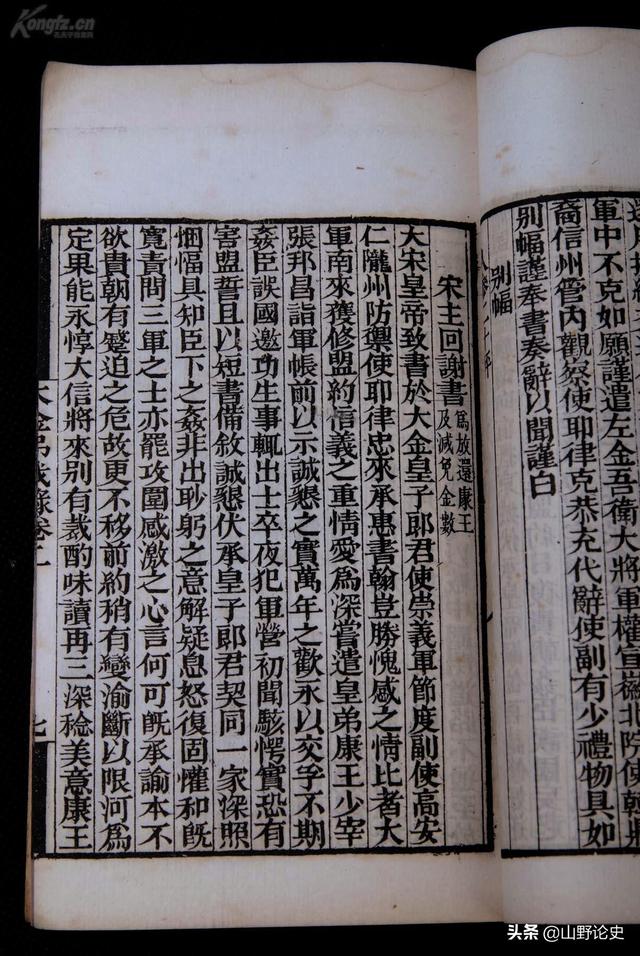 Kongfz.cn
軍中不克如願謹遣左金吾衛大將軍權宣徽北院使韓
裔信州管內觀察使耶律克恭充代辭使副有少禮物具如
別幅謹奉書奏辭以聞謹白
別幅
宋主回謝書
爲放還康王
及減免金數
大宋皇帝致書於大金皇子郎君使崇義軍節度副使高安
仁隴州防禦使耶律忠來承惠書翰豈勝愧感之情比者大
軍南來獲修盟約信義之重情愛爲深嘗遣皇弟康王少宰
張邦昌詣軍帳前以示誠懇之實萬年之歡永以交孚不期
姦臣誤國邀功生事輒出士卒夜犯軍營初聞駭愕實恐有
害盟誓且以短書備敘誠懇伏承皇子郎君契同一家深照
悃愊具知臣下之姦非出眇躬之意解疑息怒復固懽和旣
寬責問三軍之士亦罷攻圍感激之心言何可旣承諭本不
欲貴朝有蹙迫之危故更不移前約稍有變渝斷以限河爲
定果能永惇大信將來別有裁酌味讀再三深稔美意康王
大金弔伐錄卷二
七
头条 @山野论史